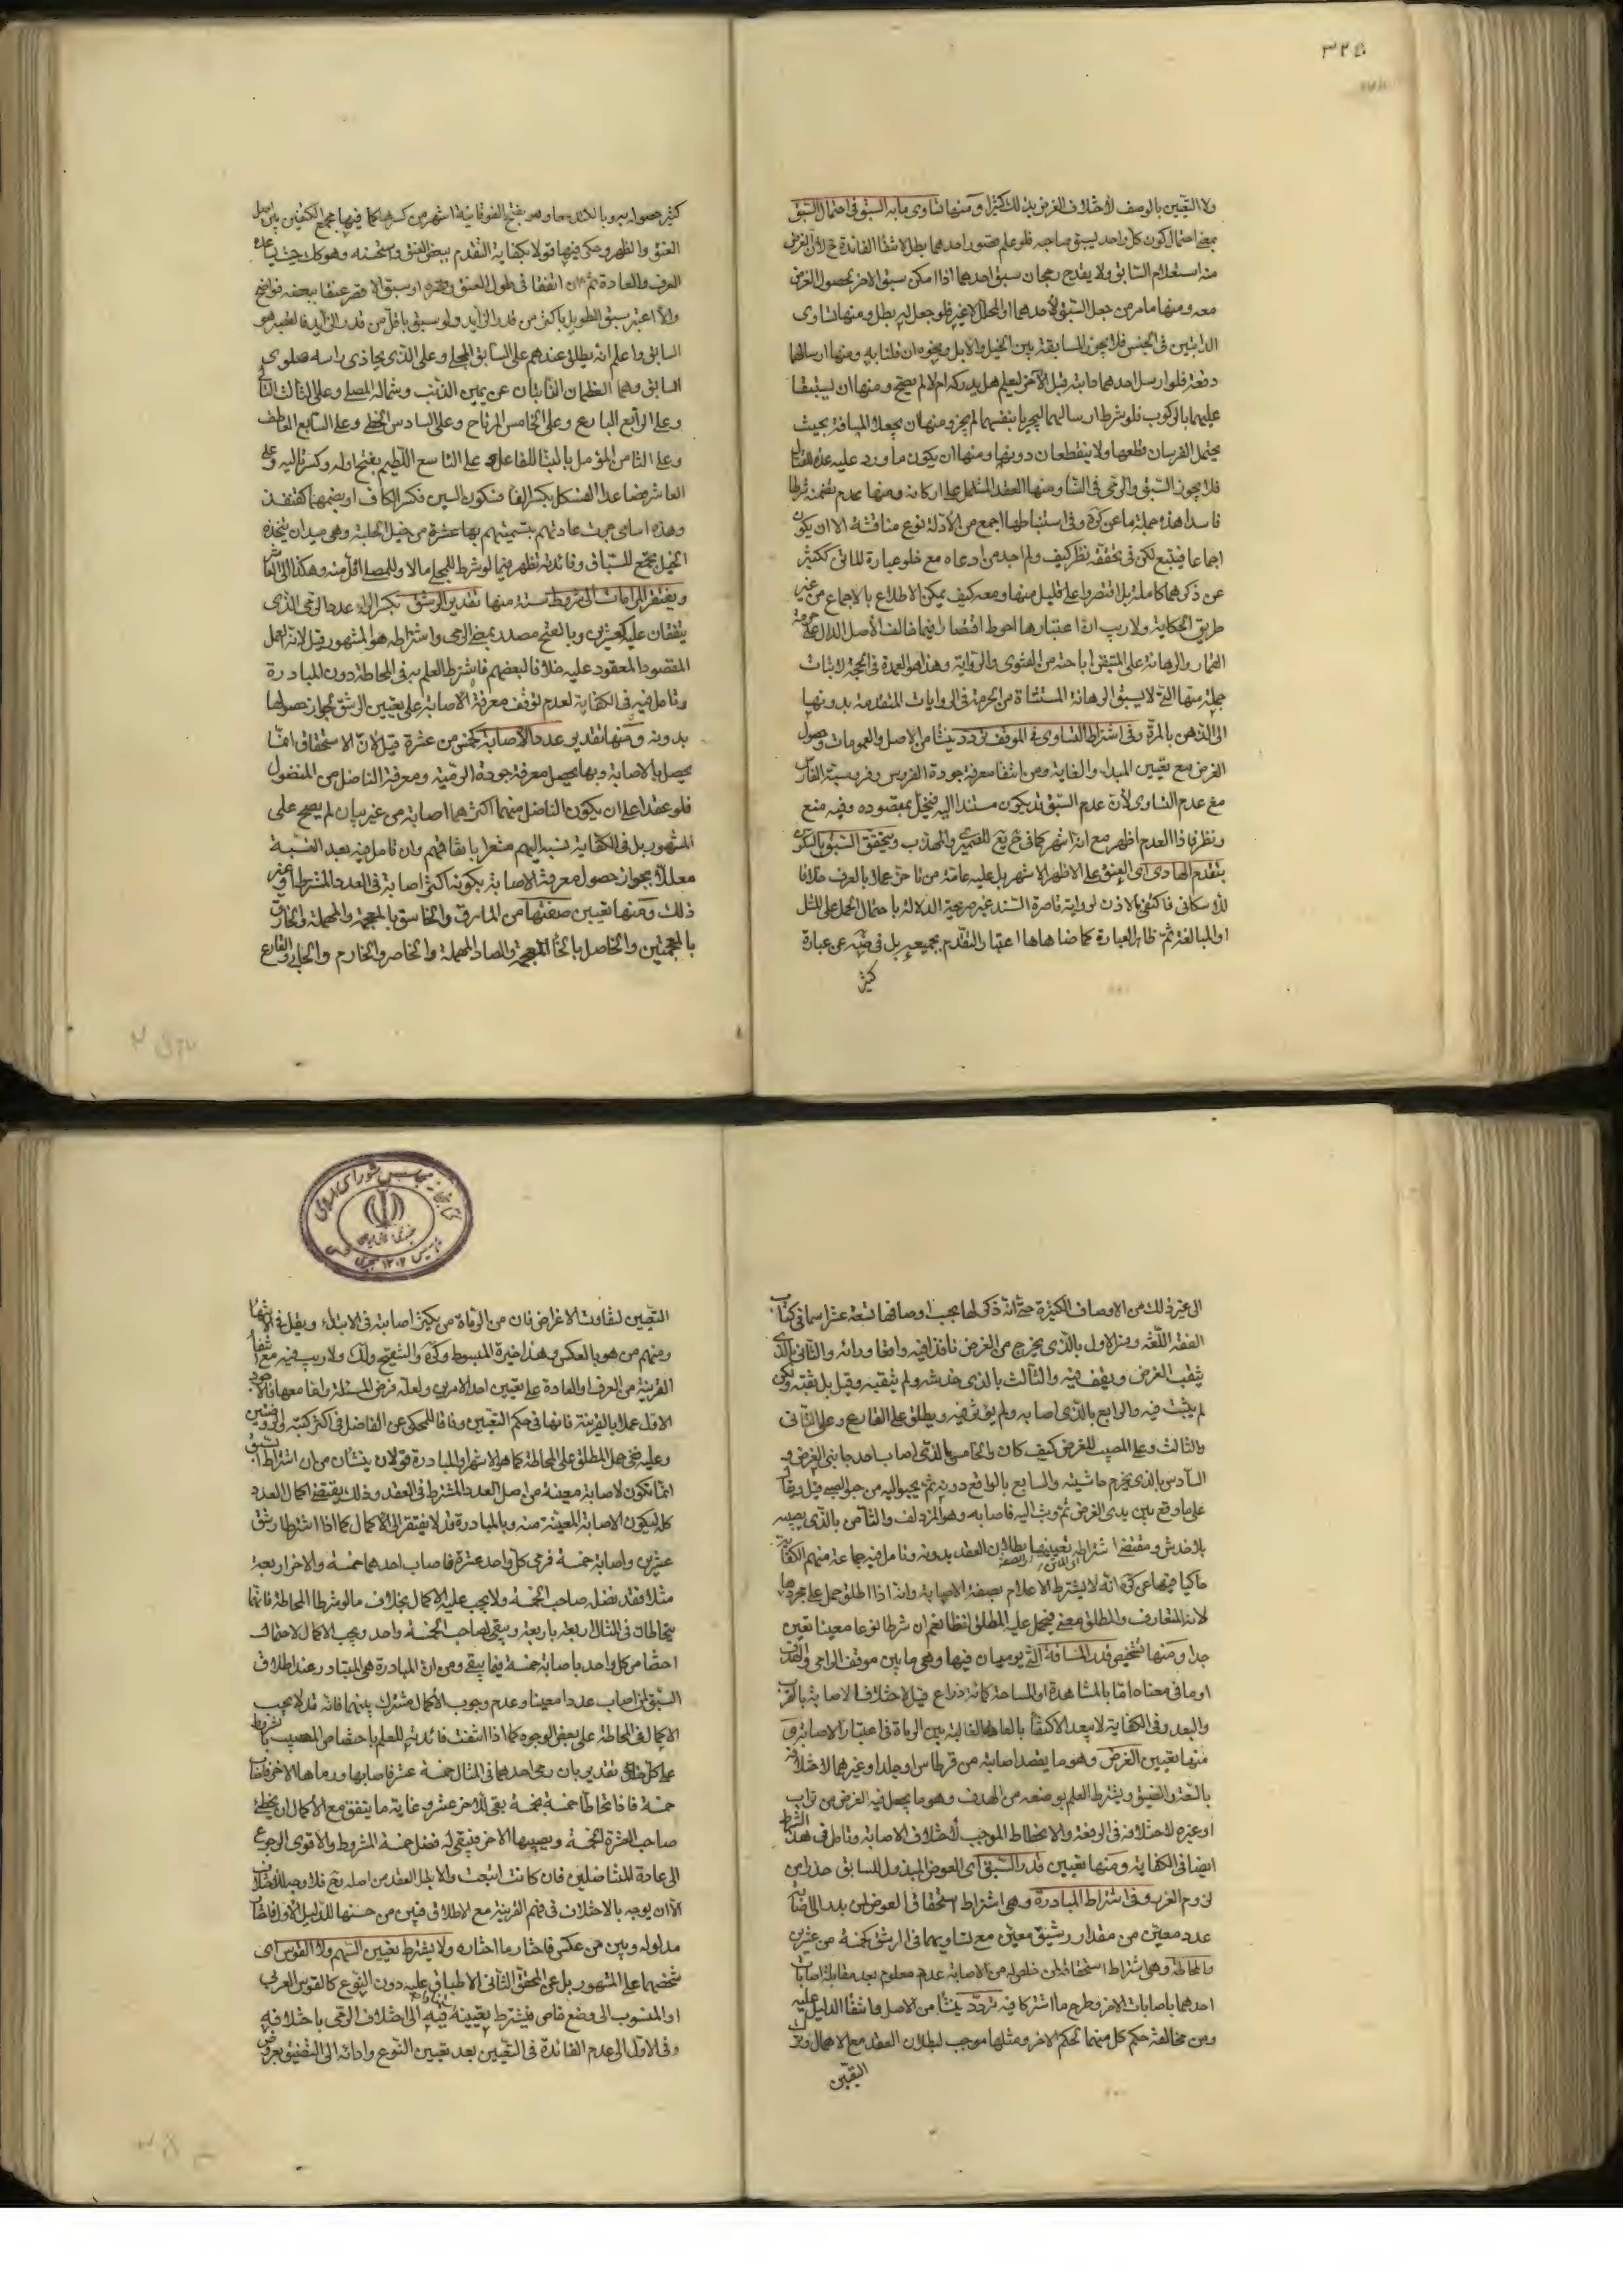 ٣٢٥
ولا التعيين بالوصف لاختلاف الغرض بذلك كثيرا ومنها تساوى ما به السبق فى احتمال السبق
بمعنى احتمال كون كل واحد يسبق صاحبه فلو علم قصور احدهما بطل لانتفاء الفائدة لان الغرض
منه استعلام السابق ولا يقدح رجحان سبق احدهما اذا امكن سبق الاخر لحصول الغرض
معه ومنها ما مر من جعل السبق لاحدهما او المحلل لا غير فلو جعل لغيره بطل ومنها تساوى
الدابتين فى الجنس فلا يجوز المسابقة بين الخيل والابل ونحوه ان قلنا به ومنها ارسالهما
دفعة فلو ارسل احدهما دابته قبل الآخر ليعلم هل يدركه ام لا لم يصح ومنها ان يستبقا
عليهما بالركوب فلو شرط ارسالهما ليجريا بنفسهما لم يجز ومنها ان يجعلا المسافة بحيث
يحتمل الفرسان قطعها ولا ينقطعان دونها ومنها ان يكون ما ورد عليه عدة للقتال
فلا يجوز السبق والرمى فى النساء ومنها العقد المشتمل على اركانه ومنها عدم تضمنه شرطا
فاسدا هذه جملة ما عن كره وفى استنباطها اجمع من الأدلة نوع مناقشة الا ان يكون
اجماعا فيتبع لكن فى تحققه نظر كيف ولم اجد من ادعاه مع خلو عبارة الماتن ككثير
عن ذكرها كاملة بل اقتصروا على قليل منها ومعه كيف يمكن الاطلاع بالاجماع من غير
طريق الحكاية ولا ريب ان اعتبارها احوط اقتصارا فيما خالف الأصل الدال على حرمة
القمار والرهانة على المتيقن اباحته من الفتوى والرواية وهذا هو العمدة فى الحجة لاثبات
جملة منها التى لا يسبق الرهانة المستثناة من الحرمة فى الروايات المتقدمة بدونها
الى الذهن بالمرة وفى اشتراط التساوى فى الموقف تردد ينشأ من الاصل والعمومات وحصول
الغرض مع تعيين المبداء والغاية ومن انتفاء معرفة جودة الفرس وفروسية الفارس
مع عدم التساوى لأن عدم السبق قد يكون مستندا اليه فيخل بمقصوده وفيه منع
ونظر فاذا العدم اظهر مع انه اشهر كما فى ويتحقق السبق بالكون
بتقدم الهادى اى العنق على الاظهر الاشهر بل عليه عامة من تأخر عملا بالعرف خلافا
للاسكافى فاكتفى بالاذن لرواية قاصرة السند غير صريحة الدلالة باحتمال الحمل على المثل
او المبالغة ثم ظاهر العبارة كما ضاهاها اعتبار التقدم بجميعه بل فى عن عبارة
كثير
كثير حصوله به وبالكتد معا وهو بفتح الفوقانية اشهر من كسرها كما فيها مجمع الكتفين بين اصل
العنق والظهر وحكى فيها قولا بكفاية التقدم ببعض العنق واستحسنه وهو كذلك حيث يساعده
العرف والعادة ثم ان اتفقا فى طول العنق وقصره او سبق الاقصر عنقا ببعضه فواضح
والا اعتبر سبق الطويل باكثر من قدر الزائد ولو سبق باقل من قدر الزائد فالقصير هو
السابق واعلم انه يطلق عندهم على السابق المجلى وعلى الذى يحاذى راسه صلوى
السابق وهما العظمان النابتان عن يمين الذنب وشماله المصلى وعلى الثالث التالى
وعلى الرابع البارع وعلى الخامس المرتاح وعلى السادس الحظى وعلى السابع العاطف
وعلى الثامن المؤمل بالبناء للفاعل وعلى التاسع اللطيم بفتح اوله وكسر ثانيه وعلى
العاشر فصاعدا الفسكل بكسر الفاء فسكون السين فكسر الكاف او بضمهما كقنفذ
وهذه اسامى جرت عادتهم بتسميتهم بها عشرة من خيل الحلبة وهى ميدان يتخذه
الخيل يجتمع للسباق وفائدته تظهر فيما لو شرط للمجلى مالا وللمصلى اقل منه وهكذا الى العاشر
ويفتقر المراماة الى شروط ستة منها تقدير الرشق بكسر الراء عدد الرمى الذى
يتفقان عليه كعشرين وبالفتح مصدر بمعنى الرمى واشتراطه هو المشهور قيل لانه العمل
المقصود المعقود عليه خلافا لبعضهم فاشترط العلم به فى المحاطة دون المبادرة
وتامل فيه فى الكفاية لعدم توقف معرفة الاصابة على تعيين الرشق لجواز حصولها
بدونه ومنها تقدير عدد الاصابة كخمس من عشرة قيل لان الاستحقاق انما
يحصل بالاصابة وبها يحصل معرفة جودة الرمية ومعرفة الناضل من المنضول
فلو عقدا على ان يكون الناضل منهما اكثرهما اصابة من غير بيان لم يصح على
المشهور بل فى الكفاية نسبه اليهم مشعرا باتفاقهم وان تامل فيه بعد النسبة
معللا بجواز حصول معرفة الاصابة بكونه اكثر اصابة فى العدد المشترط او غير
ذلك ومنها تعيين صفتها من المارق والخاسق بالمعجمة والمهملة والخازق
بالمعجمتين والخاصل بالخاء المعجمة والصاد المهملة والخاصر والخارم والحابى والقارع
الى غير ذلك من الاوصاف الكثيرة حتى انه ذكر لها بحسب اوصافها تسعة عشر اسما فى كتاب
الفقه اللغة وفسر الاول بالذى يخرج من الغرض نافذا فيه واقعا ورائه والثانى بالذى
يثقب الغرض ويقف فيه والثالث بالذى خدشه ولم يثقبه وقيل بل ثقبه ولكن
لم يثبت فيه والرابع بالذى اصابه ولم يؤثر فيه ويطلق على القارع وعلى الثانى
والثالث وعلى المصيب للغرض كيف كان والخامس بالذى اصاب احد جانبى الغرض و
السادس بالذى يخرم حاشيته والسابع بالواقع دونه ثم يحبو اليه من حبو الصبى قيل
على ما وقع بين يدى الغرض ثم وثب اليه فاصابه وهو المزدلف والثامن بالذى يصيبه
بلا خدش ومقتضى اشتراطه تعيينها بطلان العقد بدونه وتامل فيه جماعة منهم الكفاية
حاكيا فيها عن كره انه لا يشترط الاعلام بصفة الاصابة وانه اذا اطلق حمل على مجردها
لانه المتعارف والمطلق معنى فيحمل عليه المطلق لفظا نعم ان شرطا نوعا معينا تعين
جدا ومنها تشخيص قدر المسافة التى يرميان فيها وهى ما بين موقف الرامى والهدف
او ما فى معناه اما بالمشاهدة او المساحة كمائة ذراع قيل لاختلاف الاصابة بالقرب
والبعد وفى الكفاية لا يبعد الاكتفاء بالعادة الغالبة بين الرماة فى اعتبار الاصابة و
منها تعيين الغرض وهو ما يقصد اصابته من قرطاس او جلد او غيرهما لاختلافه
بالسعة والضيق ويشترط العلم بوضعه من الهدف وهو ما يجعل فيه الغرض من تراب
او غيره لاختلافه فى الرفعة والانحطاط الموجب لاختلاف الاصابة وتامل فى هذا الشرط
ايضا فى الكفاية ومنها تعيين قدر السبق اى العوض المبذول للسابق حذرا من
لزوم الغرر وفى اشتراط المبادرة وهى اشتراط استحقاق العوض لمن بدر الى اصابة
عدد معين من مقدار رشق معين مع تساويهما فى الرشق كخمسة من عشرين
والمحاطة وهى اشتراط استحقاقه لمن خلص له من الاصابة عدد معلوم بعد مقابلة اصابات
احدهما باصابات الاخر وطرح ما اشتركا فيه تردد ينشأ من الاصل وانتفاء الدليل عليه
ومن مخالفة حكم كل منهما لحكم الاخر ومثلها موجب لبطلان العقد مع الاهمال وترك
التعيين
التعيين لتفاوت الاغراض فان من الرماة من يكثر اصابته فى الابتداء ويقل فى الانتهاء
ومنهم من هو بالعكس وهذا خيرة المبسوط وكره والتنقيح ولك ولا ريب فيه مع انتفاء
القرينة من العرف او العادة على تعيين احد الامرين ولعله فرض المسئلة واما معها فالاجود
الاول عملا بالقرينة فانها فى حكم التعيين وفاقا للمحكى عن الفاضل فى اكثر كتبه والروضتين
وعليه ففى حمل المطلق على المحاطة كما هو الاشهر او المبادرة قولان ينشأن من ان اشتراط السبق
انما يكون لاصابة معينة من اصل العدد المشترط فى العقد وذلك يقتضى اكمال العدد
كله ليكون الاصابة المعينة منه وبالمبادرة قد لا يفتقر الى الاكمال كما اذا اشترطا رشق
عشرين واصابة خمسة فرمى كل واحد عشرة فاصاب احدهما خمسة والاخر اربعة
مثلا فقد نضل صاحب الخمسة ولا يجب عليه الاكمال بخلاف ما لو شرطا المحاطة فانهما
يتحاطان فى المثال اربعة باربعة ويبقى لصاحب الخمسة واحد ويجب الاكمال لاحتمال
اختصاص كل واحد باصابة خمسة فيما يبقى ومن ان المبادرة هى المتبادر عند اطلاق
السبق لمن اصاب عددا معينا وعدم وجوب الاكمال مشترك بينهما فانه قد لا يجب
الاكمال فى المحاطة على بعض الوجوه كما اذا انتفت فائدته للعلم باختصاص المصيب بالمشروط
على كل تقدير بان رمى احدهما فى المثال خمسة عشر فاصابها ورماها الاخر فاصاب
خمسة فاذا تحاطا خمسة بخمسة بقى للاخر عشر وغاية ما يتفق مع الاكمال ان يخطئ
صاحب العشرة الخمسة ويصيبها الاخر فيبقى له فضل خمسة المشروط والاقوى الرجوع
الى عادة المتناضلين فان كانت اتبعت والا بطل العقد من اصله فلا وجه للاختلاف
الا ان يوجه بالاختلاف فى فهم القرينة مع الاطلاق فبين من حسنها للدليل الاول
مدلوله وبين من عكس فاختار ما اختاره ولا يشترط تعيين السهم ولا القوس اى
شخصهما على المشهور بل عن المحقق الثانى الاطباق عليه دون النوع كالقوس العربى
او المنسوب الى وضع خاص فيشترط تعيينه فيه الى اختلاف الرمى باختلافه
وفى الاول الى عدم الفائدة فى التعيين بعد تعيين النوع وادائه الى التضييق